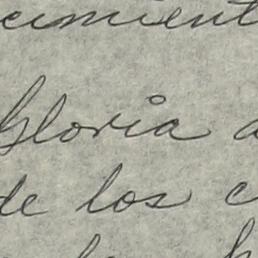 cimient
Gloria a
de los c